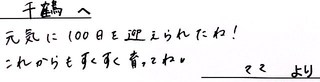 千鶴 へ
元気に100日を迎えられたね!
これからもすくすく育ってね。
ママ より